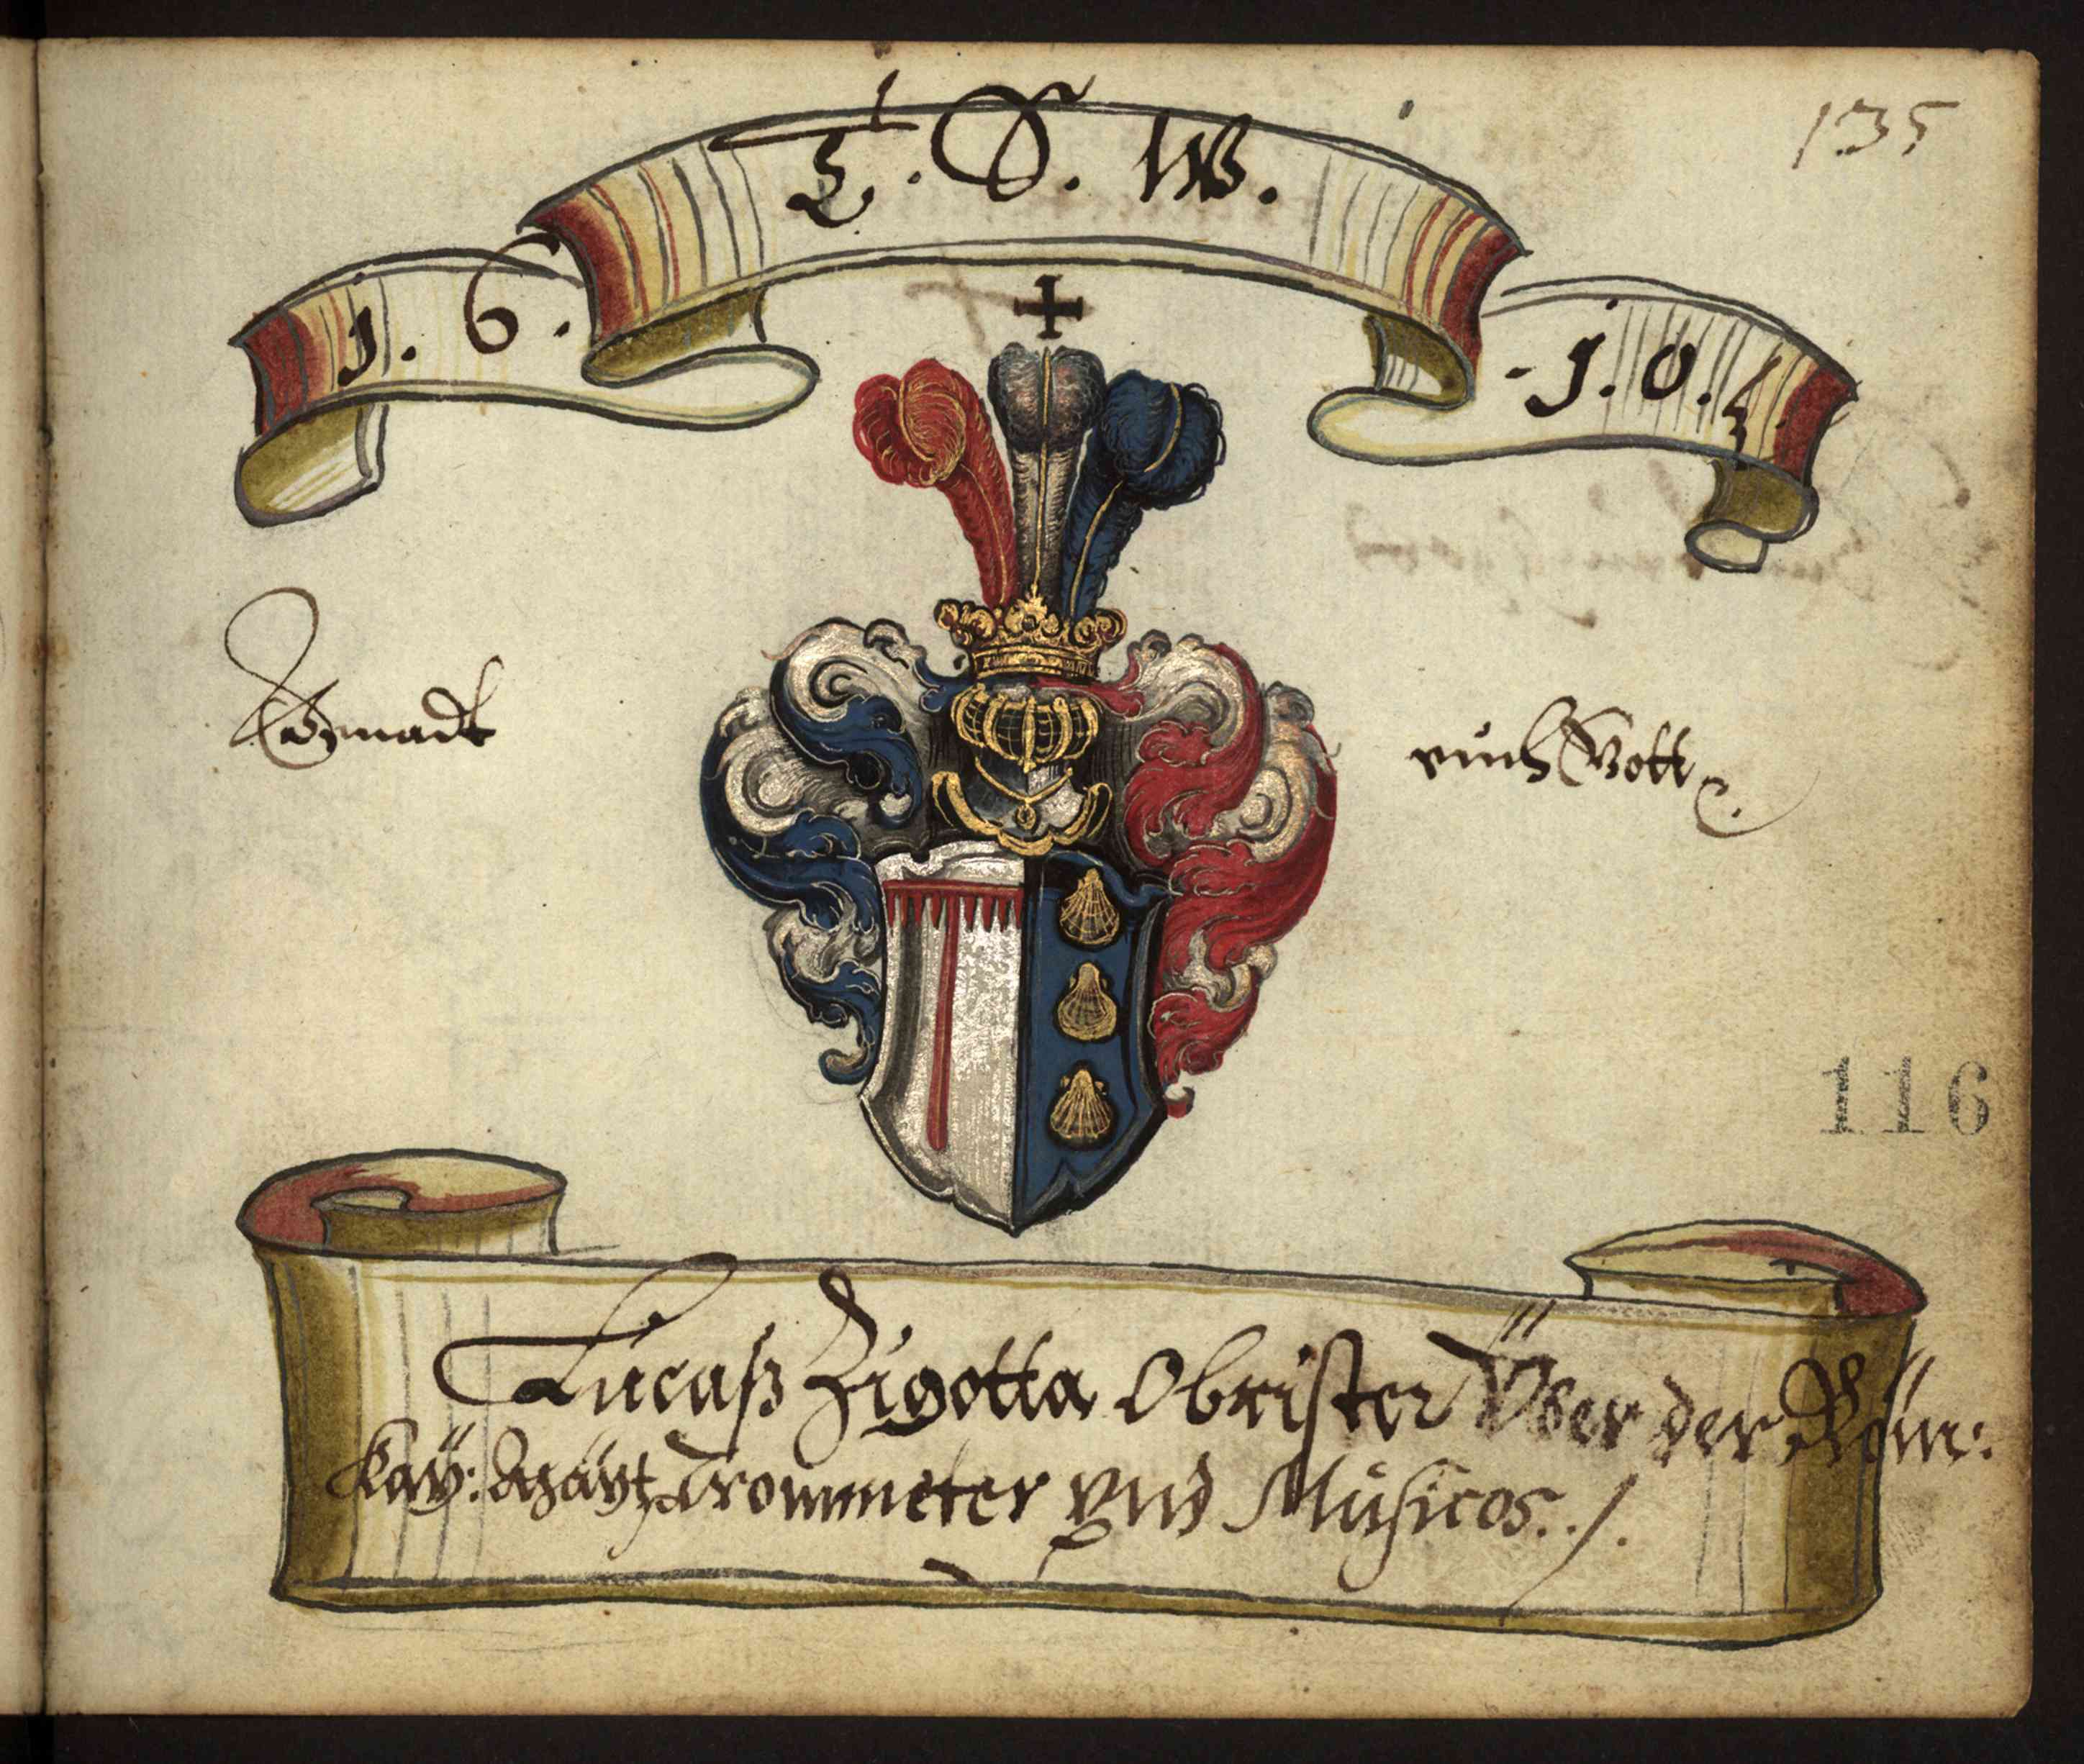 135
T. S. W.
1. 6. - 1. 0.
Gott
116
Lucaß Zigotta Obrister Über der Röm:
Kay: Mayt: Trommeter vnd Musicos ./.